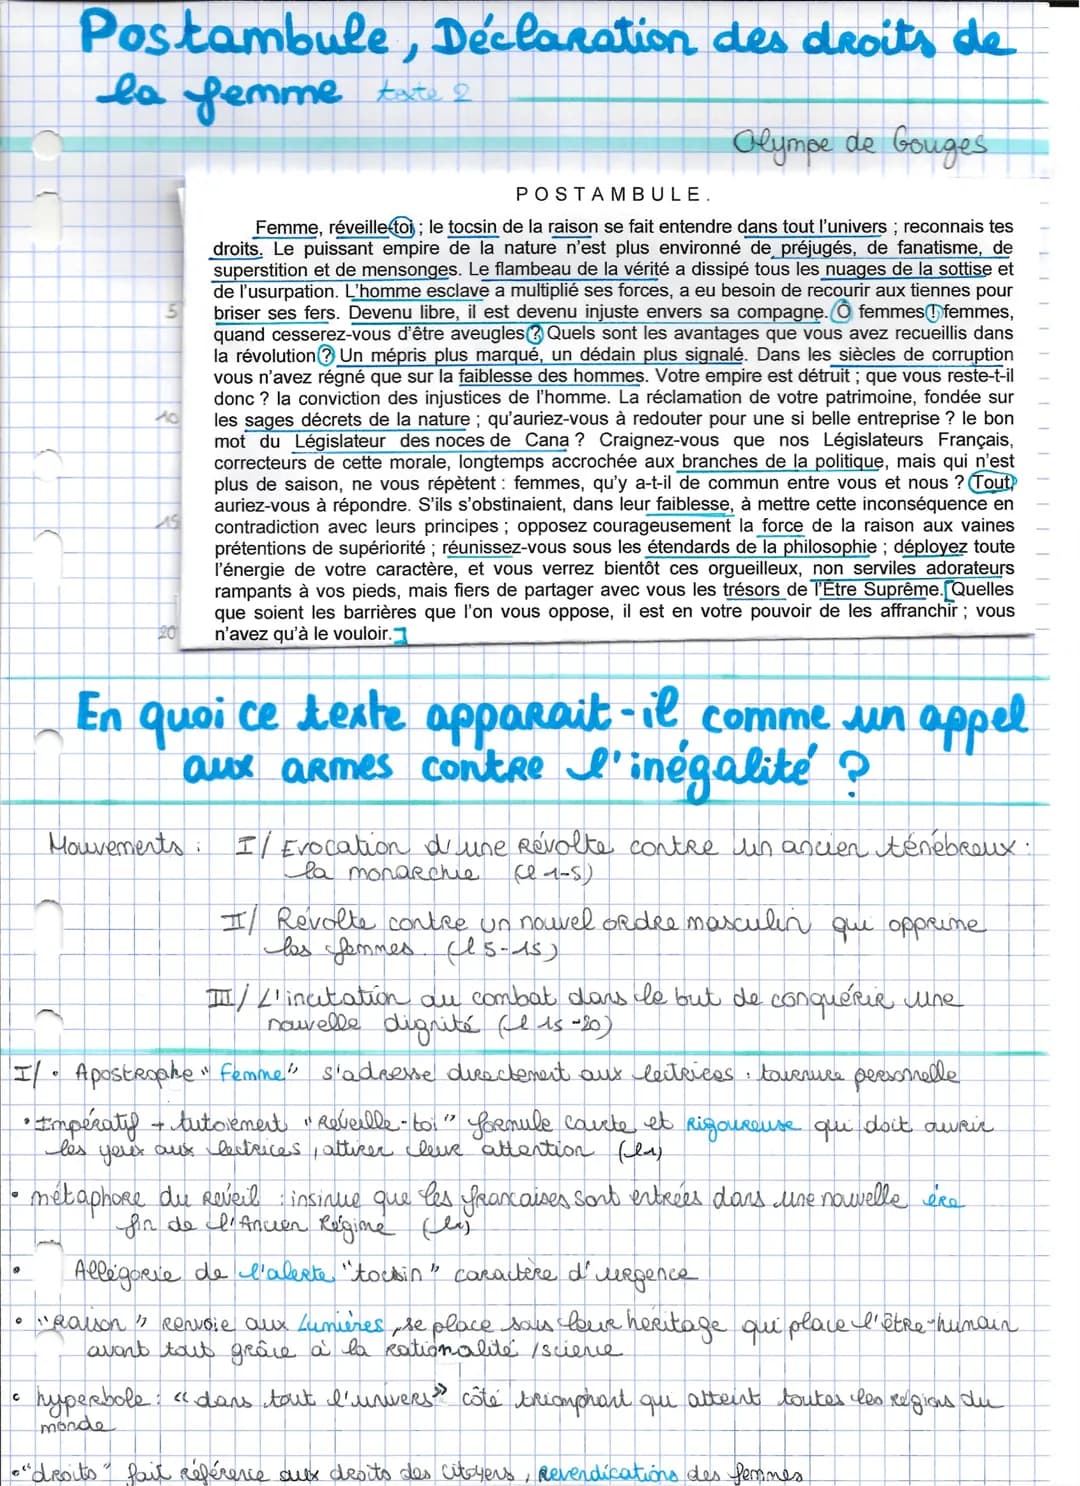 Postambule, Déclaration des droits de
la femme texte 2
Olympe de Gouges
POSTAMBULE.
Femme, réveille-toi ; le tocsin de la raison se fait entendre dans tout l'univers ; reconnais tes
droits. Le puissant empire de la nature n'est plus environné de préjugés, de fanatisme, de
superstition et de mensonges. Le flambeau de la vérité a dissipé tous les nuages de la sottise et
de l'usurpation. L'homme esclave a multiplié ses forces, a eu besoin de recourir aux tiennes pour
5 briser ses fers. Devenu libre, il est devenu injuste envers sa compagne. Ô femmes ! femmes,
quand cesserez-vous d'être aveugles ? Quels sont les avantages que vous avez recueillis dans
la révolution ? Un mépris plus marqué, un dédain plus signalé. Dans les siècles de corruption
vous n'avez régné que sur la faiblesse des hommes. Votre empire est détruit ; que vous reste-t-il
donc ? la conviction des injustices de l'homme. La réclamation de votre patrimoine, fondée sur
10 les sages décrets de la nature ; qu'auriez-vous à redouter pour une si belle entreprise ? le bon
mot du Législateur des noces de Cana ? Craignez-vous que nos Législateurs Français,
correcteurs de cette morale, longtemps accrochée aux branches de la politique, mais qui n'est
plus de saison, ne vous répètent : femmes, qu'y a-t-il de commun entre vous et nous ? Tout,
auriez-vous à répondre. S'ils s'obstinaient, dans leur faiblesse, à mettre cette inconséquence en
15 contradiction avec leurs principes ; opposez courageusement la force de la raison aux vaines
prétentions de supériorité ; réunissez-vous sous les étendards de la philosophie ; déployez toute
l'énergie de votre caractère, et vous verrez bientôt ces orgueilleux, non serviles adorateurs
rampants à vos pieds, mais fiers de partager avec vous les trésors de l'Etre Suprême. [Quelles
que soient les barrières que l'on vous oppose, il est en votre pouvoir de les affranchir ; vous
20 n'avez qu'à le vouloir.]
En quoi ce texte apparait-il comme un appel
aux armes contre l'inégalité ?
Mouvements : I/ Evocation d'une Révolte contre un ancien ténébreux :
la monarchie (l 1-5)
II/ Révolte contre un nouvel ordre masculin qui opprime
les femmes. (l 5-15)
III/ L'incitation au combat dans le but de conquérir une
nouvelle dignité (l 15-20)
I/ • Apostrophe "Femme" s'adresse directement aux lectrices : tournure personnelle
• Impératif + tutoiement "Réveille-toi" formule courte et rigoureuse qui doit ouvrir
les yeux aux lectrices, attirer leur attention (l1)
• métaphore du réveil : insinue que les françaises sont entrées dans une nouvelle ère
fin de l'Ancien Régime (l1)
• Allégorie de l'alerte "tocsin" caractère d'urgence
• "Raison" renvoie aux Lumières, se place sous leur héritage qui place l'être-humain
avant tout grâce à la rationalité / science
• hyperbole : « dans tout l'univers » côté triomphant qui atteint toutes les régions du
monde
• "droits" fait référence aux droits des citoyens, revendications des femmes